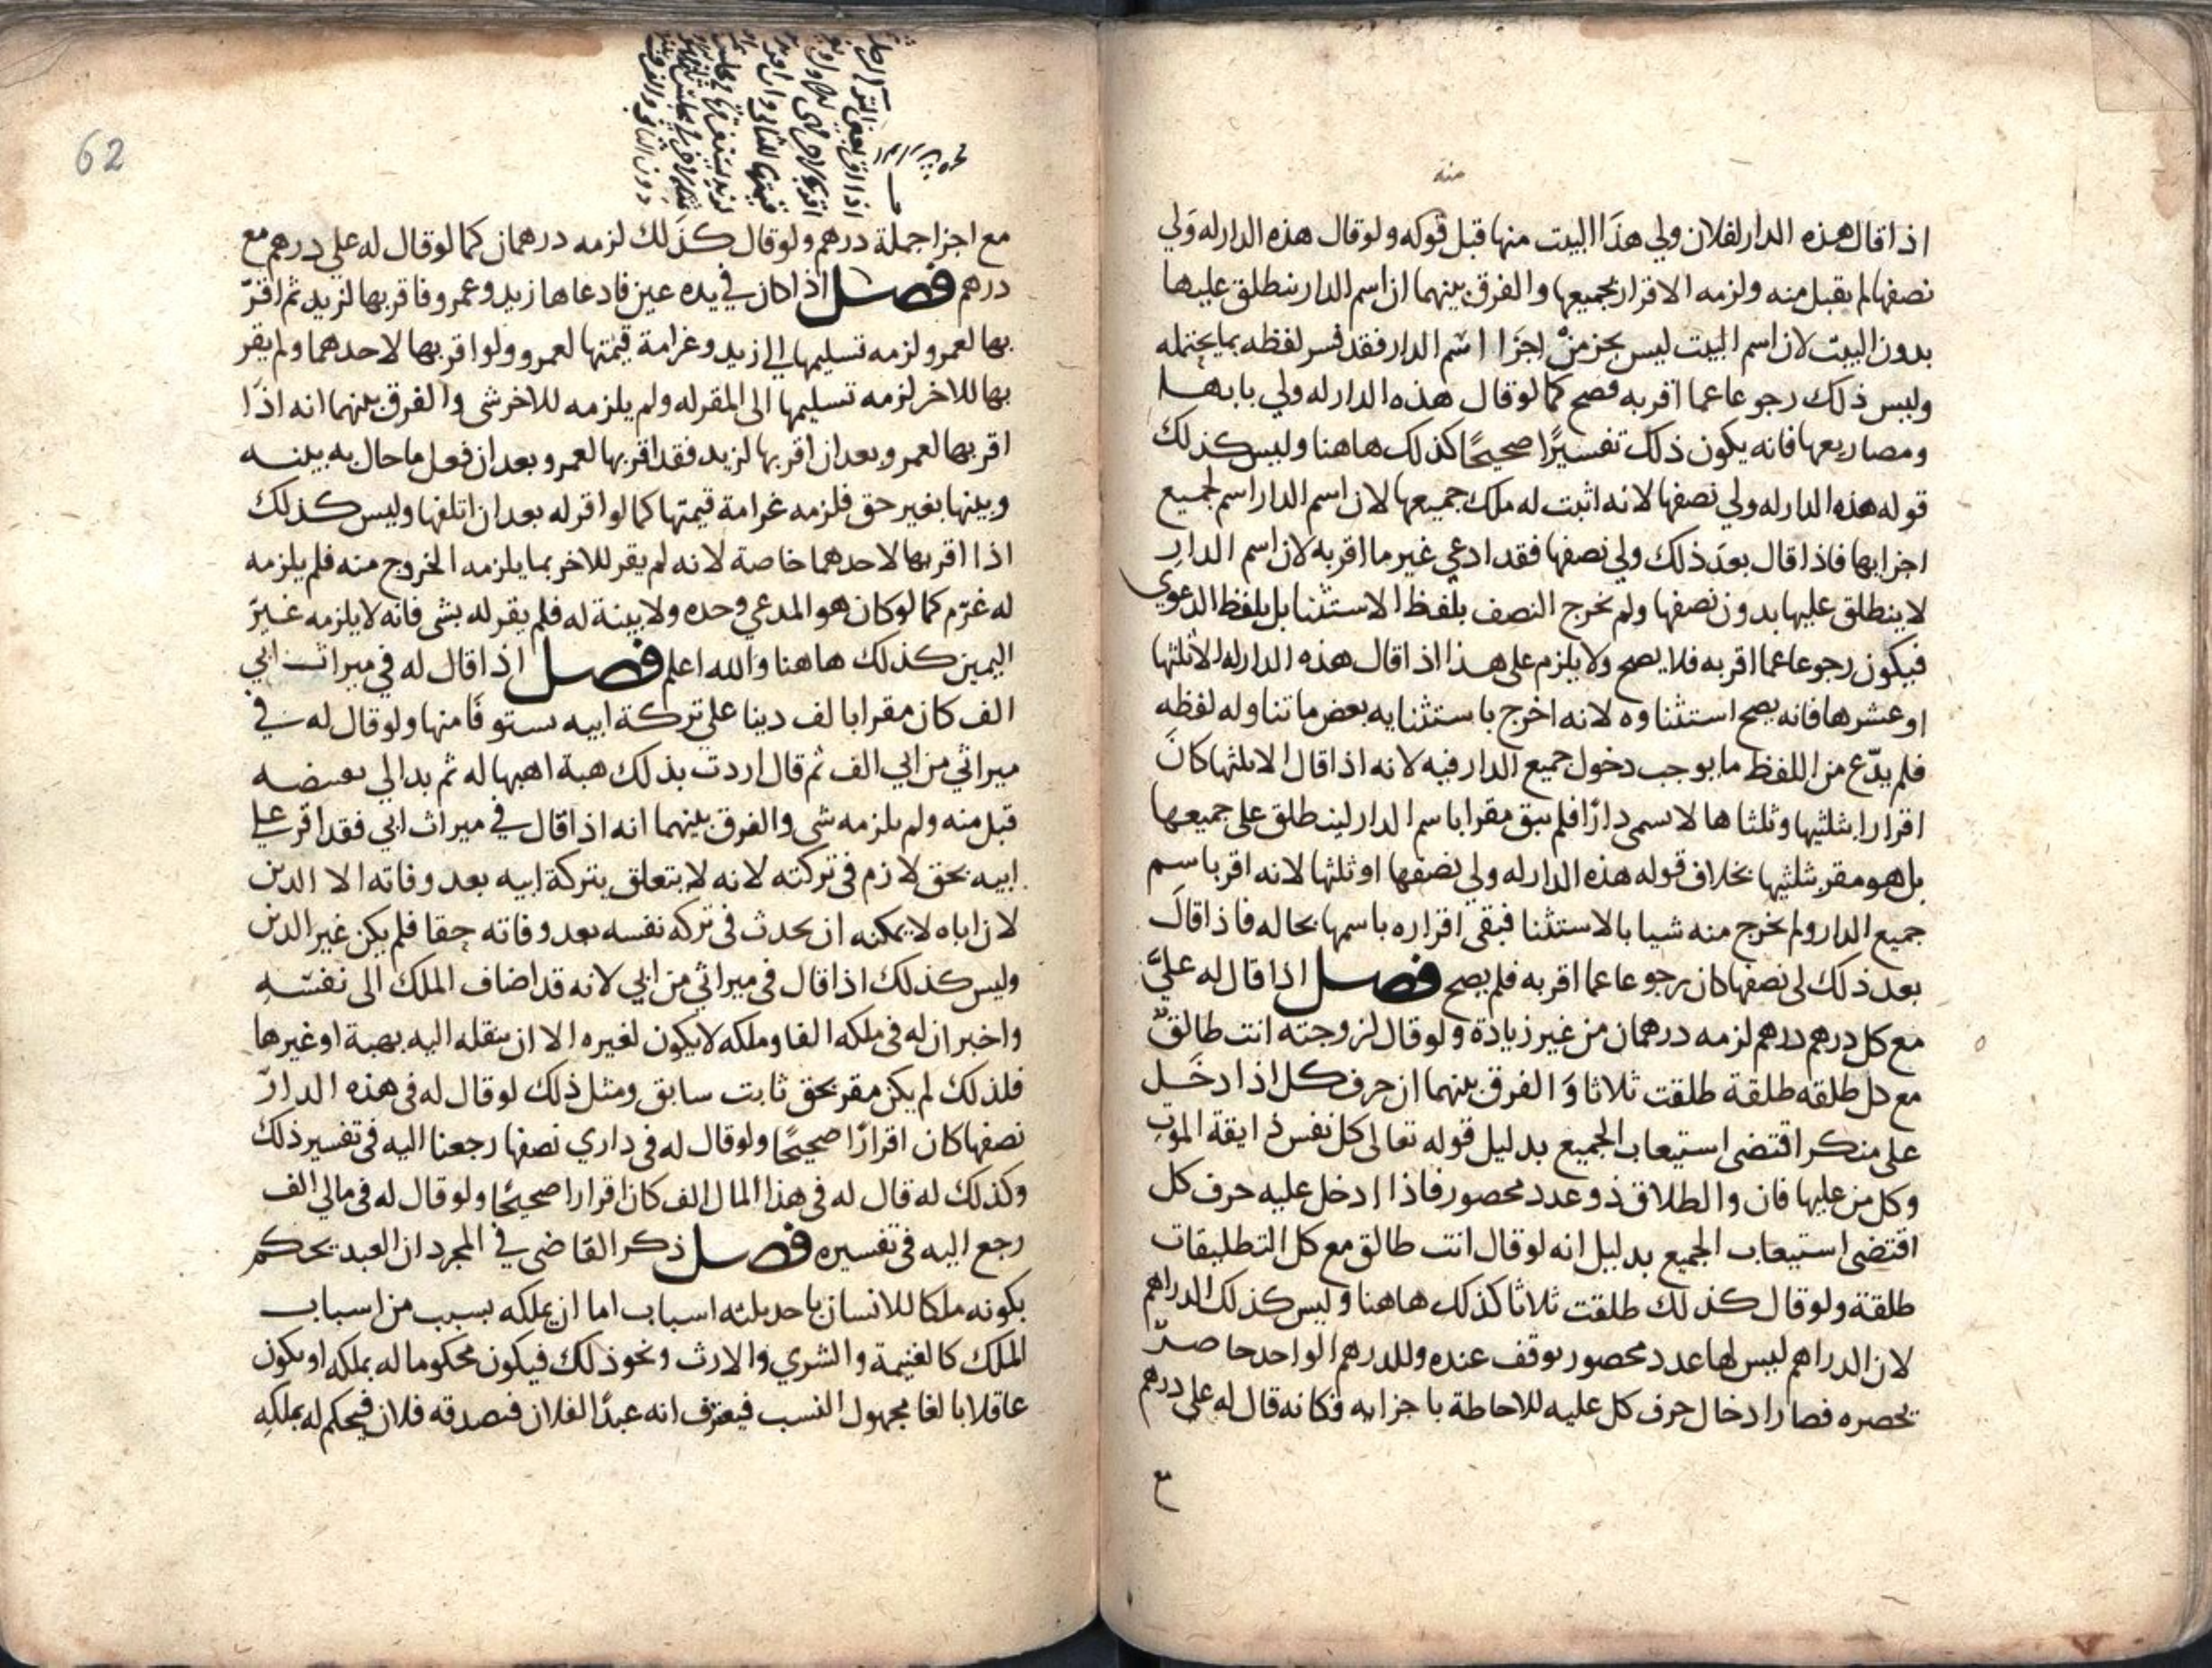 منه
اذا قال هذه الدار لفلان ولي هذا البيت منها قبل قوله ولو قال هذه الدار له ولي
نصفها لم يقبل منه ولزمه الاقرار بجميعها والفرق بينهما ان اسم الدار ينطلق عليها
بدون البيت لان اسم البيت ليس بجز من اجزا اسم الدار فقد فسر لفظه بما يحتمله
وليس ذلك رجوعا عما اقر به فصح كما لو قال هذه الدار له ولي بابها
ومصاريعها فانه يكون ذلك تفسيرًا صحيحًا كذلك هاهنا وليس كذلك
قوله هذه الدار له ولي نصفها لانه اثبت له ملك جميعها لان اسم الدار اسم لجميع
اجزايها فاذا قال بعد ذلك ولي نصفها فقد ادعي غير ما اقر به لان اسم الدار
لا ينطلق عليها بدون نصفها ولم يخرج النصف بلفظ الاستثنا بل بلفظ الدعوي
فيكون رجوعا عما اقر به فلا يصح ولا يلزم على هذا اذا قال هذه الدار له الا ثلثها
او عشرها فانه يصح استثناوه لانه اخرج باستثنايه بعض ما تناوله لفظه
فلم يدّع من اللفظ ما يوجب دخول جميع الدار فيه لانه اذا قال الا ثلثها كان
اقرارا بثلثيها وثلثاها لا سمى دارًا فلم يبق مقرا باسم الدار لينطلق على جميعها
بل هو مقر بثلثيها بخلاف قوله هذه الدار له ولي نصفها او ثلثها لانه اقر باسم
جميع الدار ولم يخرج منه شيا بالاستثنا فبقى اقراره باسمها بحاله فاذا قال
بعد ذلك لى نصفها كان رجوعا عما اقر به فلم يصح فصل اذا قال له عليّ
مع كل درهم درهم لزمه درهمان من غير زيادة ولو قال لزوجته انت طالق
مع كل طلقه طلقة طلقت ثلاثا والفرق بينهما ان حرف كل اذا دخل
على منكر اقتضى استيعاب الجميع بدليل قوله تعالى كل نفس ذايقة الموت
وكل من عليها فان والطلاق ذو عدد محصور فاذا ادخل عليه حرف كل
اقتضى استيعاب الجميع بدليل انه لو قال انت طالق مع كل التطليقات
طلقة ولو قال كذلك طلقت ثلاثا كذلك هاهنا وليس كذلك الدراهم
لان الدراهم ليس لها عدد محصور يوقف عنده وللدرهم الواحد حاصرٌ
يحصره فصار ادخال حرف كل عليه للاحاطة باجزايه فكانه قال له علي درهم
مع
62
اذا اقر بعين
مع اجزا جملة درهم ولو قال كذلك لزمه درهمان كما لو قال له علي درهم مع
درهم فصل اذا كان في يده عين فادعاها زيد وعمرو فاقر بها لزيد ثم اقرّ
بها لعمرو لزمه تسليمها الي زيد وغرامة قيمتها لعمرو ولو اقر بها لاحدهما ولم يقر
بها للاخر لزمه تسليمها الى المقر له ولم يلزمه للاخر شى والفرق بينهما انه اذا
اقر بها لعمرو بعد ان اقر بها لزيد فقد اقر بها لعمرو بعد ان فعل ما حال به بينه
وبينها بغير حق فلزمه غرامة قيمتها كما لو اقر له بعد ان اتلفها وليس كذلك
اذا اقر بها لاحدهما خاصة لانه لم يقر للاخر بما يلزمه الخروج منه فلم يلزمه
له غرم كما لو كان هو المدعي وحده ولا بينة له فلم يقر له بشى فانه لا يلزمه غير
اليمين كذلك هاهنا والله اعلم فصل اذا قال له في ميراث ابي
الف كان مقرا بالف دينا على تركة ابيه مستوفا منها ولو قال له في
ميراثي من ابي الف ثم قال اردت بذلك هبة اهبها له ثم بدا لي تقبيضه
قبل منه ولم يلزمه شى والفرق بينهما انه اذا قال في ميراث ابي فقد اقر على
ابيه بحق لازم في تركته لانه لا يتعلق بتركة ابيه بعد وفاته الا الدين
لان اباه لا يمكنه ان يحدث في تركه نفسه بعد وفاته حقا فلم يكن غير الدين
وليس كذلك اذا قال في ميراثي من ابي لانه قد اضاف الملك الى نفسه
واخبر ان له في ملكه الفا وملكه لا يكون لغيره الا ان ينقله اليه بهبة او غيرها
فلذلك لم يكن مقر بحق ثابت سابق ومثل ذلك لو قال له في هذه الدار
نصفها كان اقرارًا صحيحًا ولو قال له في داري نصفها رجعنا اليه في تفسير ذلك
وكذلك له قال له في هذا المال الف كان اقرارا صحيحًا ولو قال له في مالي الف
رجع اليه في تفسيره فصل ذكر القاضى في المجرد ان العبد يحكم
بكونه ملكا للانسان باحد ثلثه اسباب اما ان يملكه بسبب من اسباب
الملك كالغنيمة والشري والارث ونحو ذلك فيكون محكوما له بملكه او يكون
عاقلا بالغا مجهول النسب فيعترف انه عبدًا لفلان فصدقه فلان فيحكم له بملكه